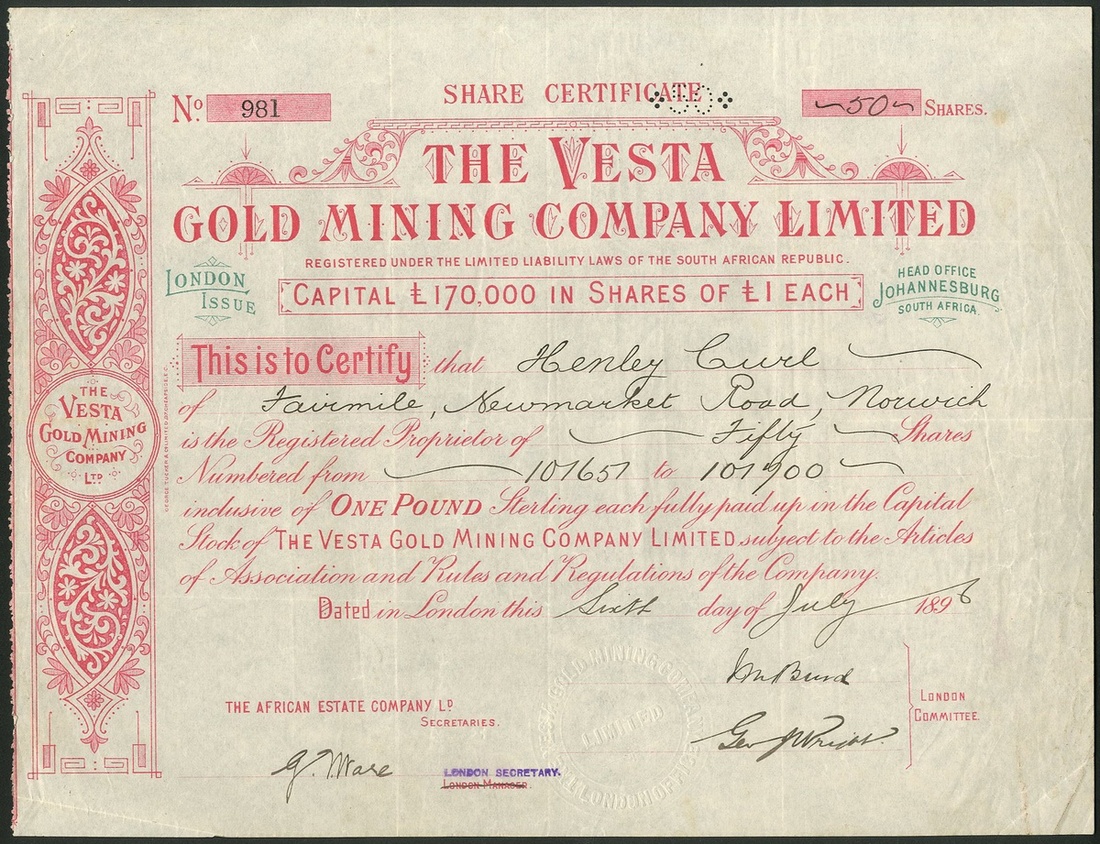 SHARE CERTIFICATE
No. 981
50 SHARES.
THE VESTA
GOLD MINING COMPANY LIMITED
REGISTERED UNDER THE LIMITED LIABILITY LAWS OF THE SOUTH AFRICAN REPUBLIC.
LONDON
ISSUE
CAPITAL £170,000 IN SHARES OF £1 EACH
HEAD OFFICE
JOHANNESBURG
SOUTH AFRICA.
This is to Certify that Henley Curl
of Fairmile, Newmarket Road, Norwich
is the Registered Proprietor of Fifty Shares
Numbered from 101651 to 101700
inclusive of ONE POUND Sterling each fully paid up in the Capital
Stock of THE VESTA GOLD MINING COMPANY LIMITED subject to the Articles
of Association and Rules and Regulations of the Company.
Dated in London this Sixth day of July 1898
THE
VESTA
GOLD MINING
COMPANY
LTD
THE AFRICAN ESTATE COMPANY LD
SECRETARIES.
LONDON
COMMITTEE.
Geo J Wright
G. Ware
LONDON SECRETARY.
LONDON MANAGER.
LIMITED